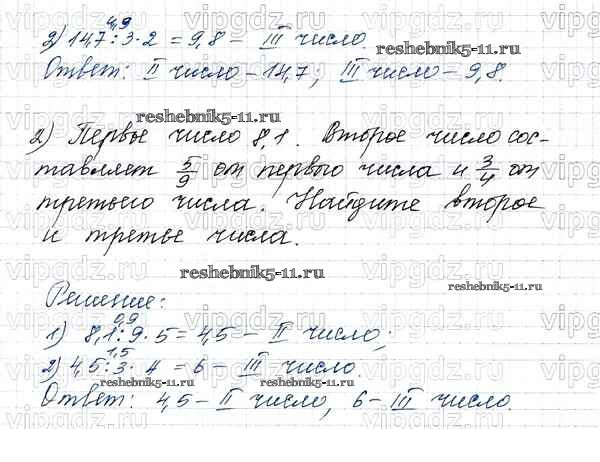 4,9
2) 14,7 : 3 · 2 = 9,8 - III число
reshebnik5-11.ru
Ответ: II число - 14,7; III число - 9,8.
reshebnik5-11.ru
2) Первое число 8,1. Второе число сос-
тавляет 5/9 от первого числа и 3/4 от
третьего числа. Найдите второе
и третье числа.
reshebnik5-11.ru
reshebnik5-11.ru
Решение:
0,9
1) 8,1 : 9 · 5 = 4,5 - II число;
1,5
2) 4,5 : 3 · 4 = 6 - III число.
reshebnik5-11.ru reshebnik5-11.ru
Ответ: 4,5 - II число, 6 - III число.
vipgdz.ru